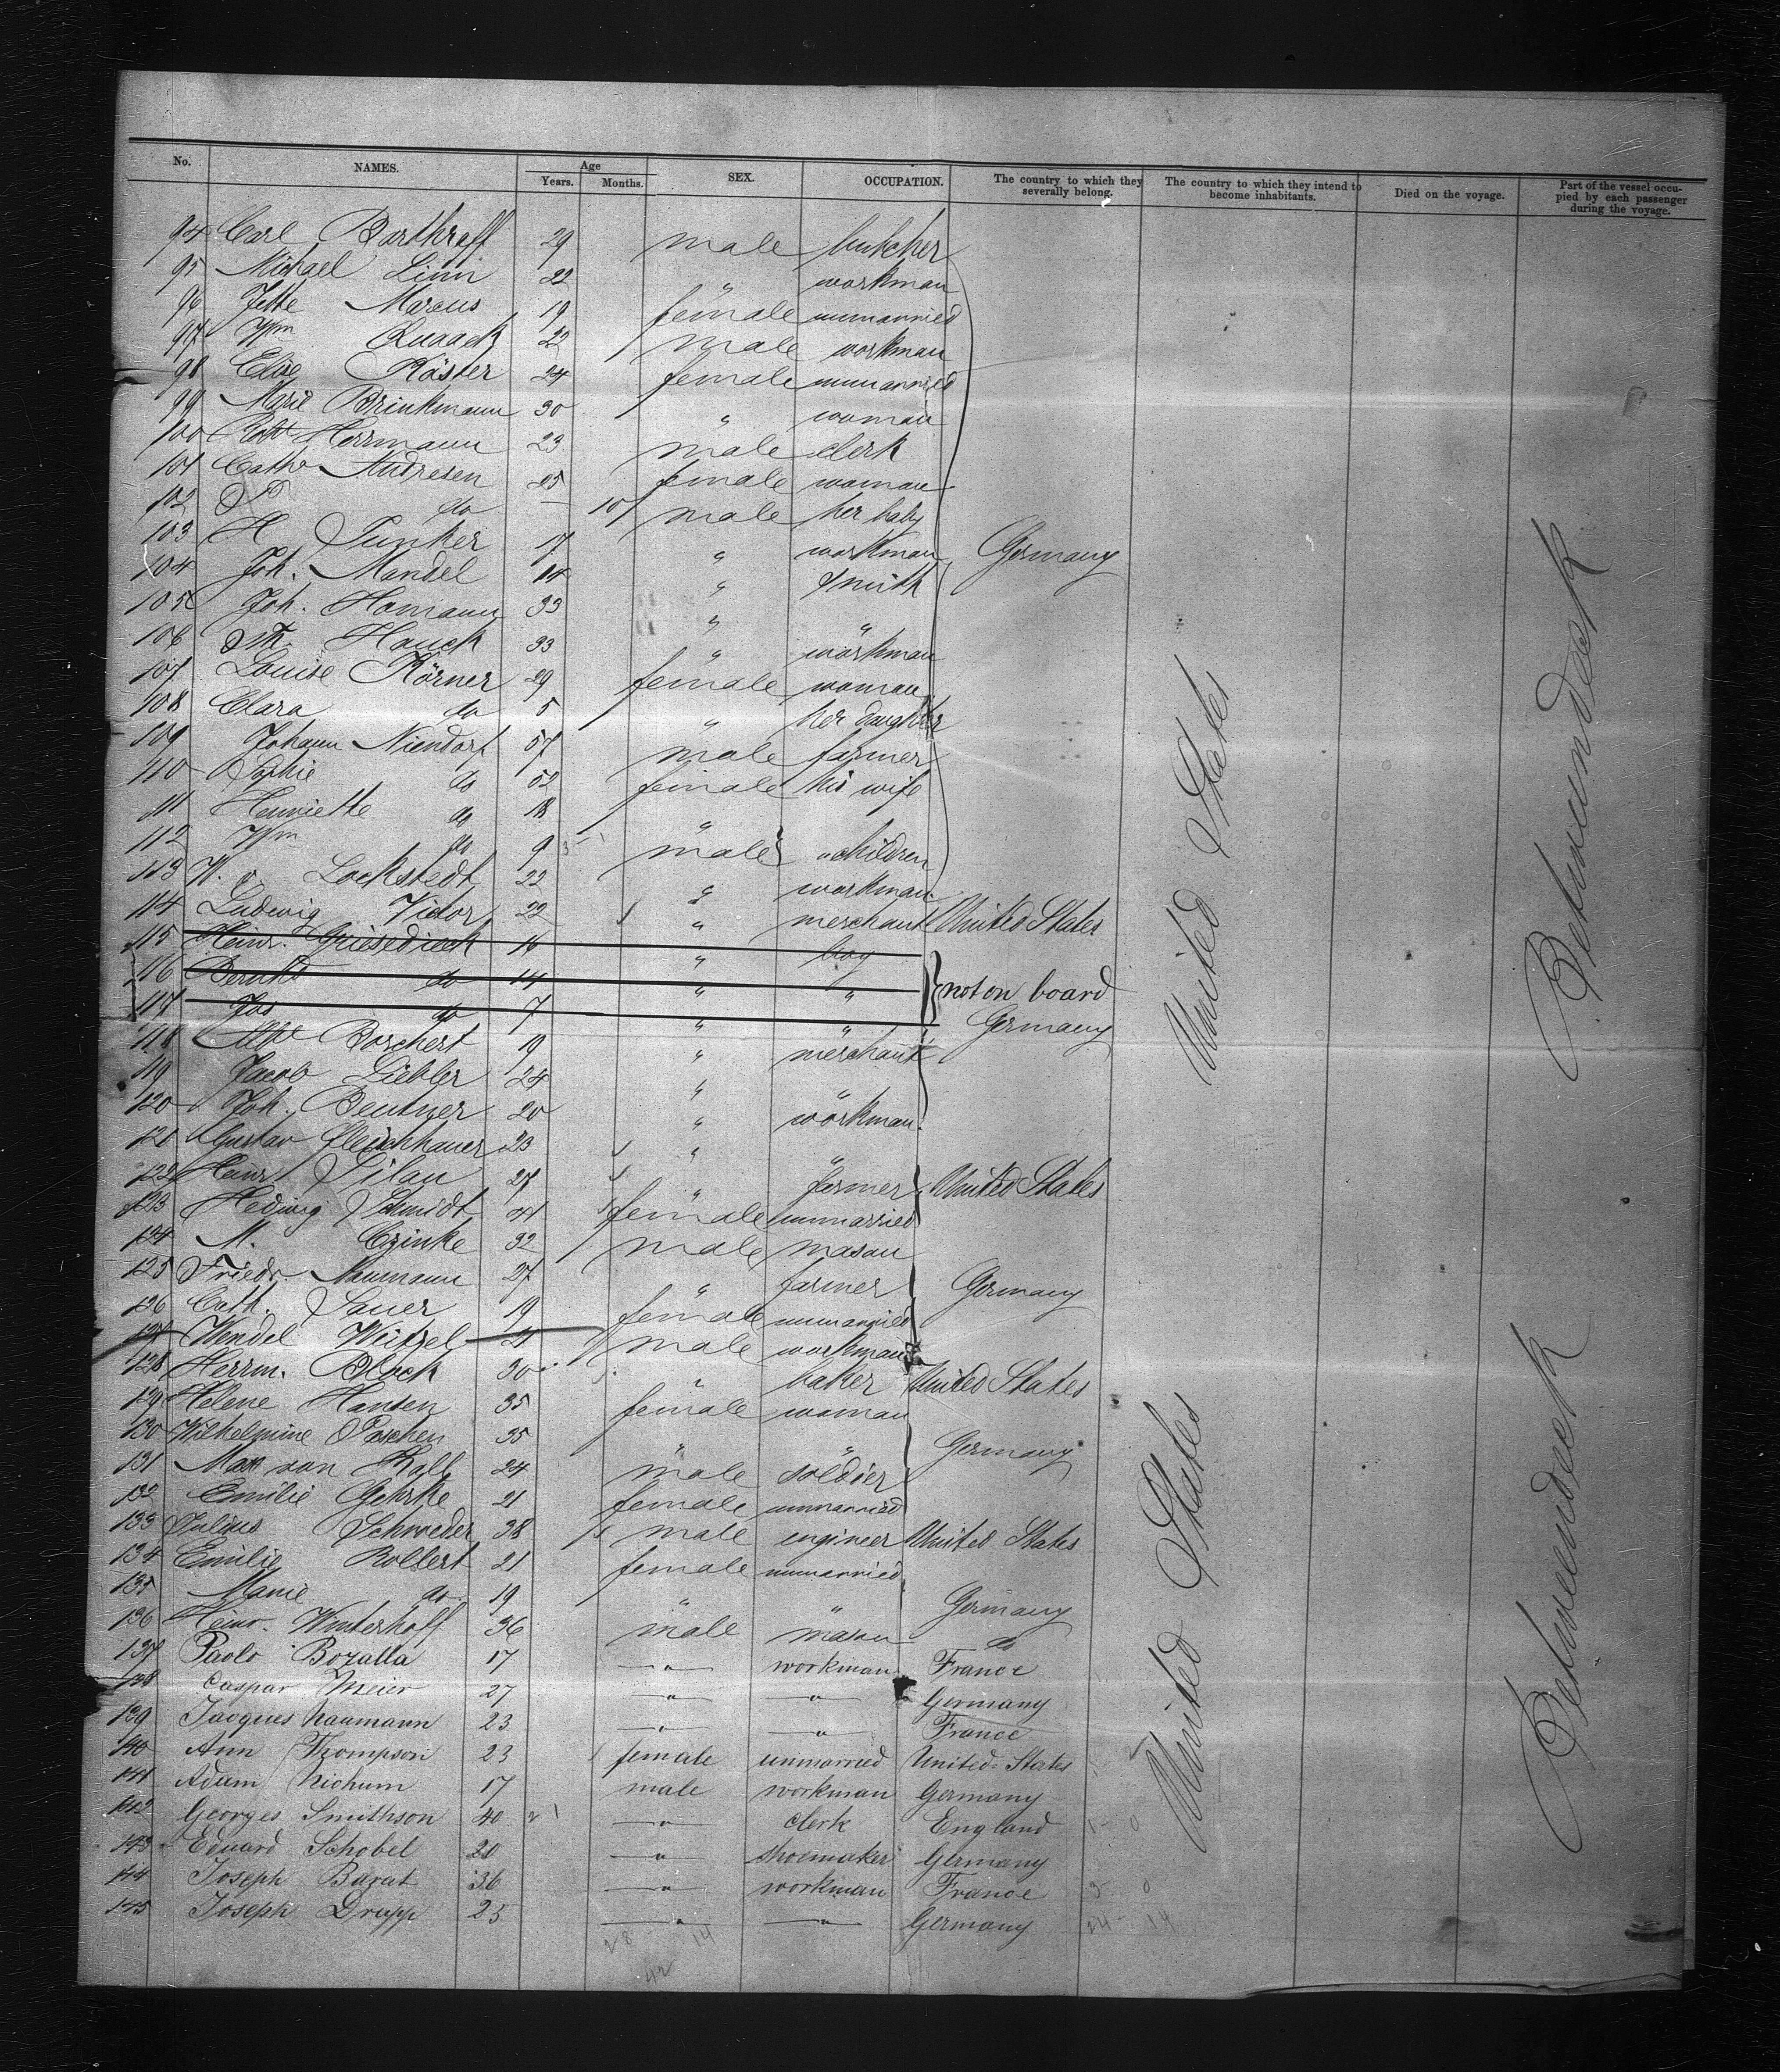 No. NAMES. Age Years. Months. SEX. OCCUPATION. The country to which they severally belong. The country to which they intend to become inhabitants. Died on the voyage. Part of the vessel occupied by each passenger during the voyage.
94 Carl Barthraff 29 male butcher
95 Michael Linn 22 " workman
96 Jette Marcus 19 female unmarried
97 Wm Quaack 22 male workman
98 Elve Köster 24 female unmarried
99 Marie Brinkmann 30 " woman
100 Robt Herrmann 23 male clerk
101 Cathe Andresen 25 female woman
102 P do — 10 male her baby
103 H Junker 17 " workman Germany
104 Joh. Mandel 14 " smith
105 Joh. Homann 33 " "
106 Th. Hauck 33 " workman
107 Louise Körner 29 female woman
108 Clara do 5 " her daughter
109 Johann Niendorf 57 male farmer
110 Sophie do 52 female his wife
111 Henriette do 18 "
112 Wm do 9 male children
113 W. v. Lockstedt 22 " workman
114 Ludwig Victor 22 " merchant United States
115 Heinr. Griesedieck 16 " boy
116 Bernhd do 14 " " not on board
117 Jos do 7 " " Germany
118 Albt Borchert 19 " merchant
119 Jacob Liebler 24 " "
120 Joh. Beutner 20 " workman
121 Gustav Fleischhauer 23 " "
122 Heinr Silau 27 " farmer United States
123 Hedwig Schmidt 41 female unmarried
124 M. Czinke 32 male mason
125 Friedr Naumann 27 " farmer Germany
126 Cath. Sauer 19 female unmarried
127 Wendel Weitzel 21 male workman
128 Herrm. Block 30 " baker United States
129 Helene Hansen 35 female woman
130 Wilhelmine Paschen 35 " " Germany
131 Max von Kall 24 male soldier
132 Emilie Gehrke 21 female unmarried
133 Julius Schweder 38 male engineer United States
134 Emilie Rollert 21 female unmarried
135 Marie do 19 " " Germany
136 Heinr. Winterhoff 36 male mason do
137 Paolo Bozalla 17 " workman France
138 Caspar Meier 27 " " Germany
139 Jacques Naumann 23 " " France
140 Ann Thompson 23 female unmarried United States
141 Adam Nichum 17 male workman Germany
142 Georges Smithson 40 " clerk England
143 Eduard Schobel 20 " shoemaker Germany
144 Joseph Barat 36 " workman France
145 Joseph Drupp 25 " " Germany
28 14
42
24 14
United States
United States
Betweendeck
Betweendeck